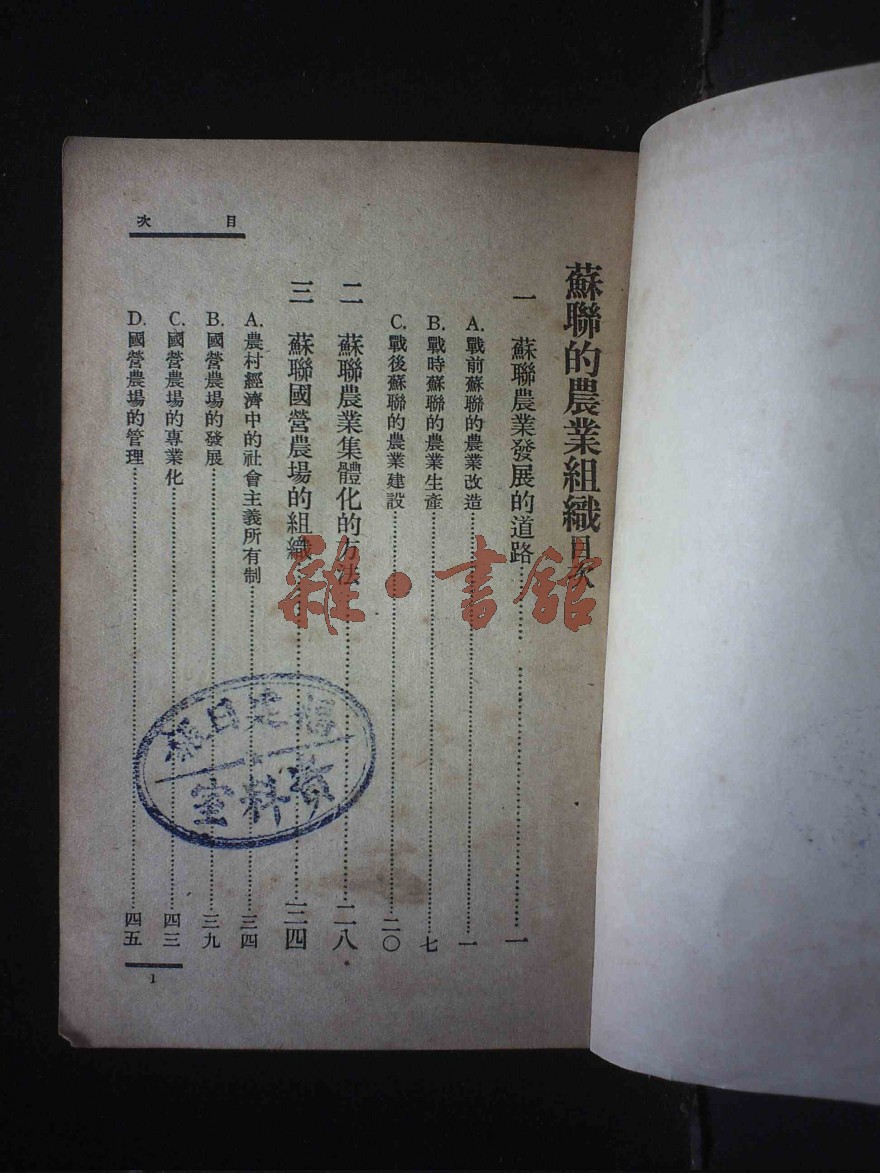 目次
蘇聯的農業組織目次
一 蘇聯農業發展的道路……一
A.戰前蘇聯的農業改造……一
B.戰時蘇聯的農業生產……七
C.戰後蘇聯的農業建設……二〇
二 蘇聯農業集體化的方法……二八
三 蘇聯國營農場的組織……三四
A.農村經濟中的社會主義所有制……三四
B.國營農場的發展……三九
C.國營農場的專業化……四三
D.國營農場的管理……四五
1
雜·書館
福建日報
資料室